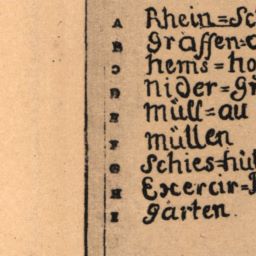 A Rhein=Sc
B graffen=
C hems=ho
D nider=gr
E müll=au
F müllen
G Schies=hü
H Exercir=
I garten.